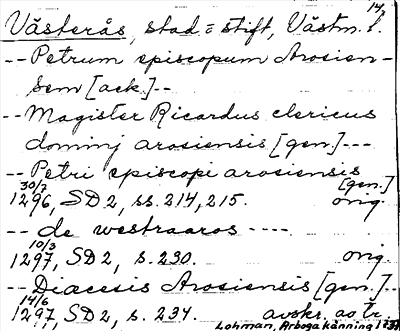 14,
Västerås, stad = stift, Västm. l.
-- Petrum episcopum Arosien-
sem [ack.] --
-- Magister Ricardus clericus
dominj arosiensis [gen.] ---
-- Petri episcopi arosiensis
[gen.]
30/7
1296, SD 2, ss. 214, 215. orig.
-- de westraaros ----
10/3
1297, SD 2, s. 230. orig.
-- Diacesis Arosiensis [gen.] --
14/6
1297, SD 2, s. 234. avskr. ao tr.
Lohman, Arboga känning 1737